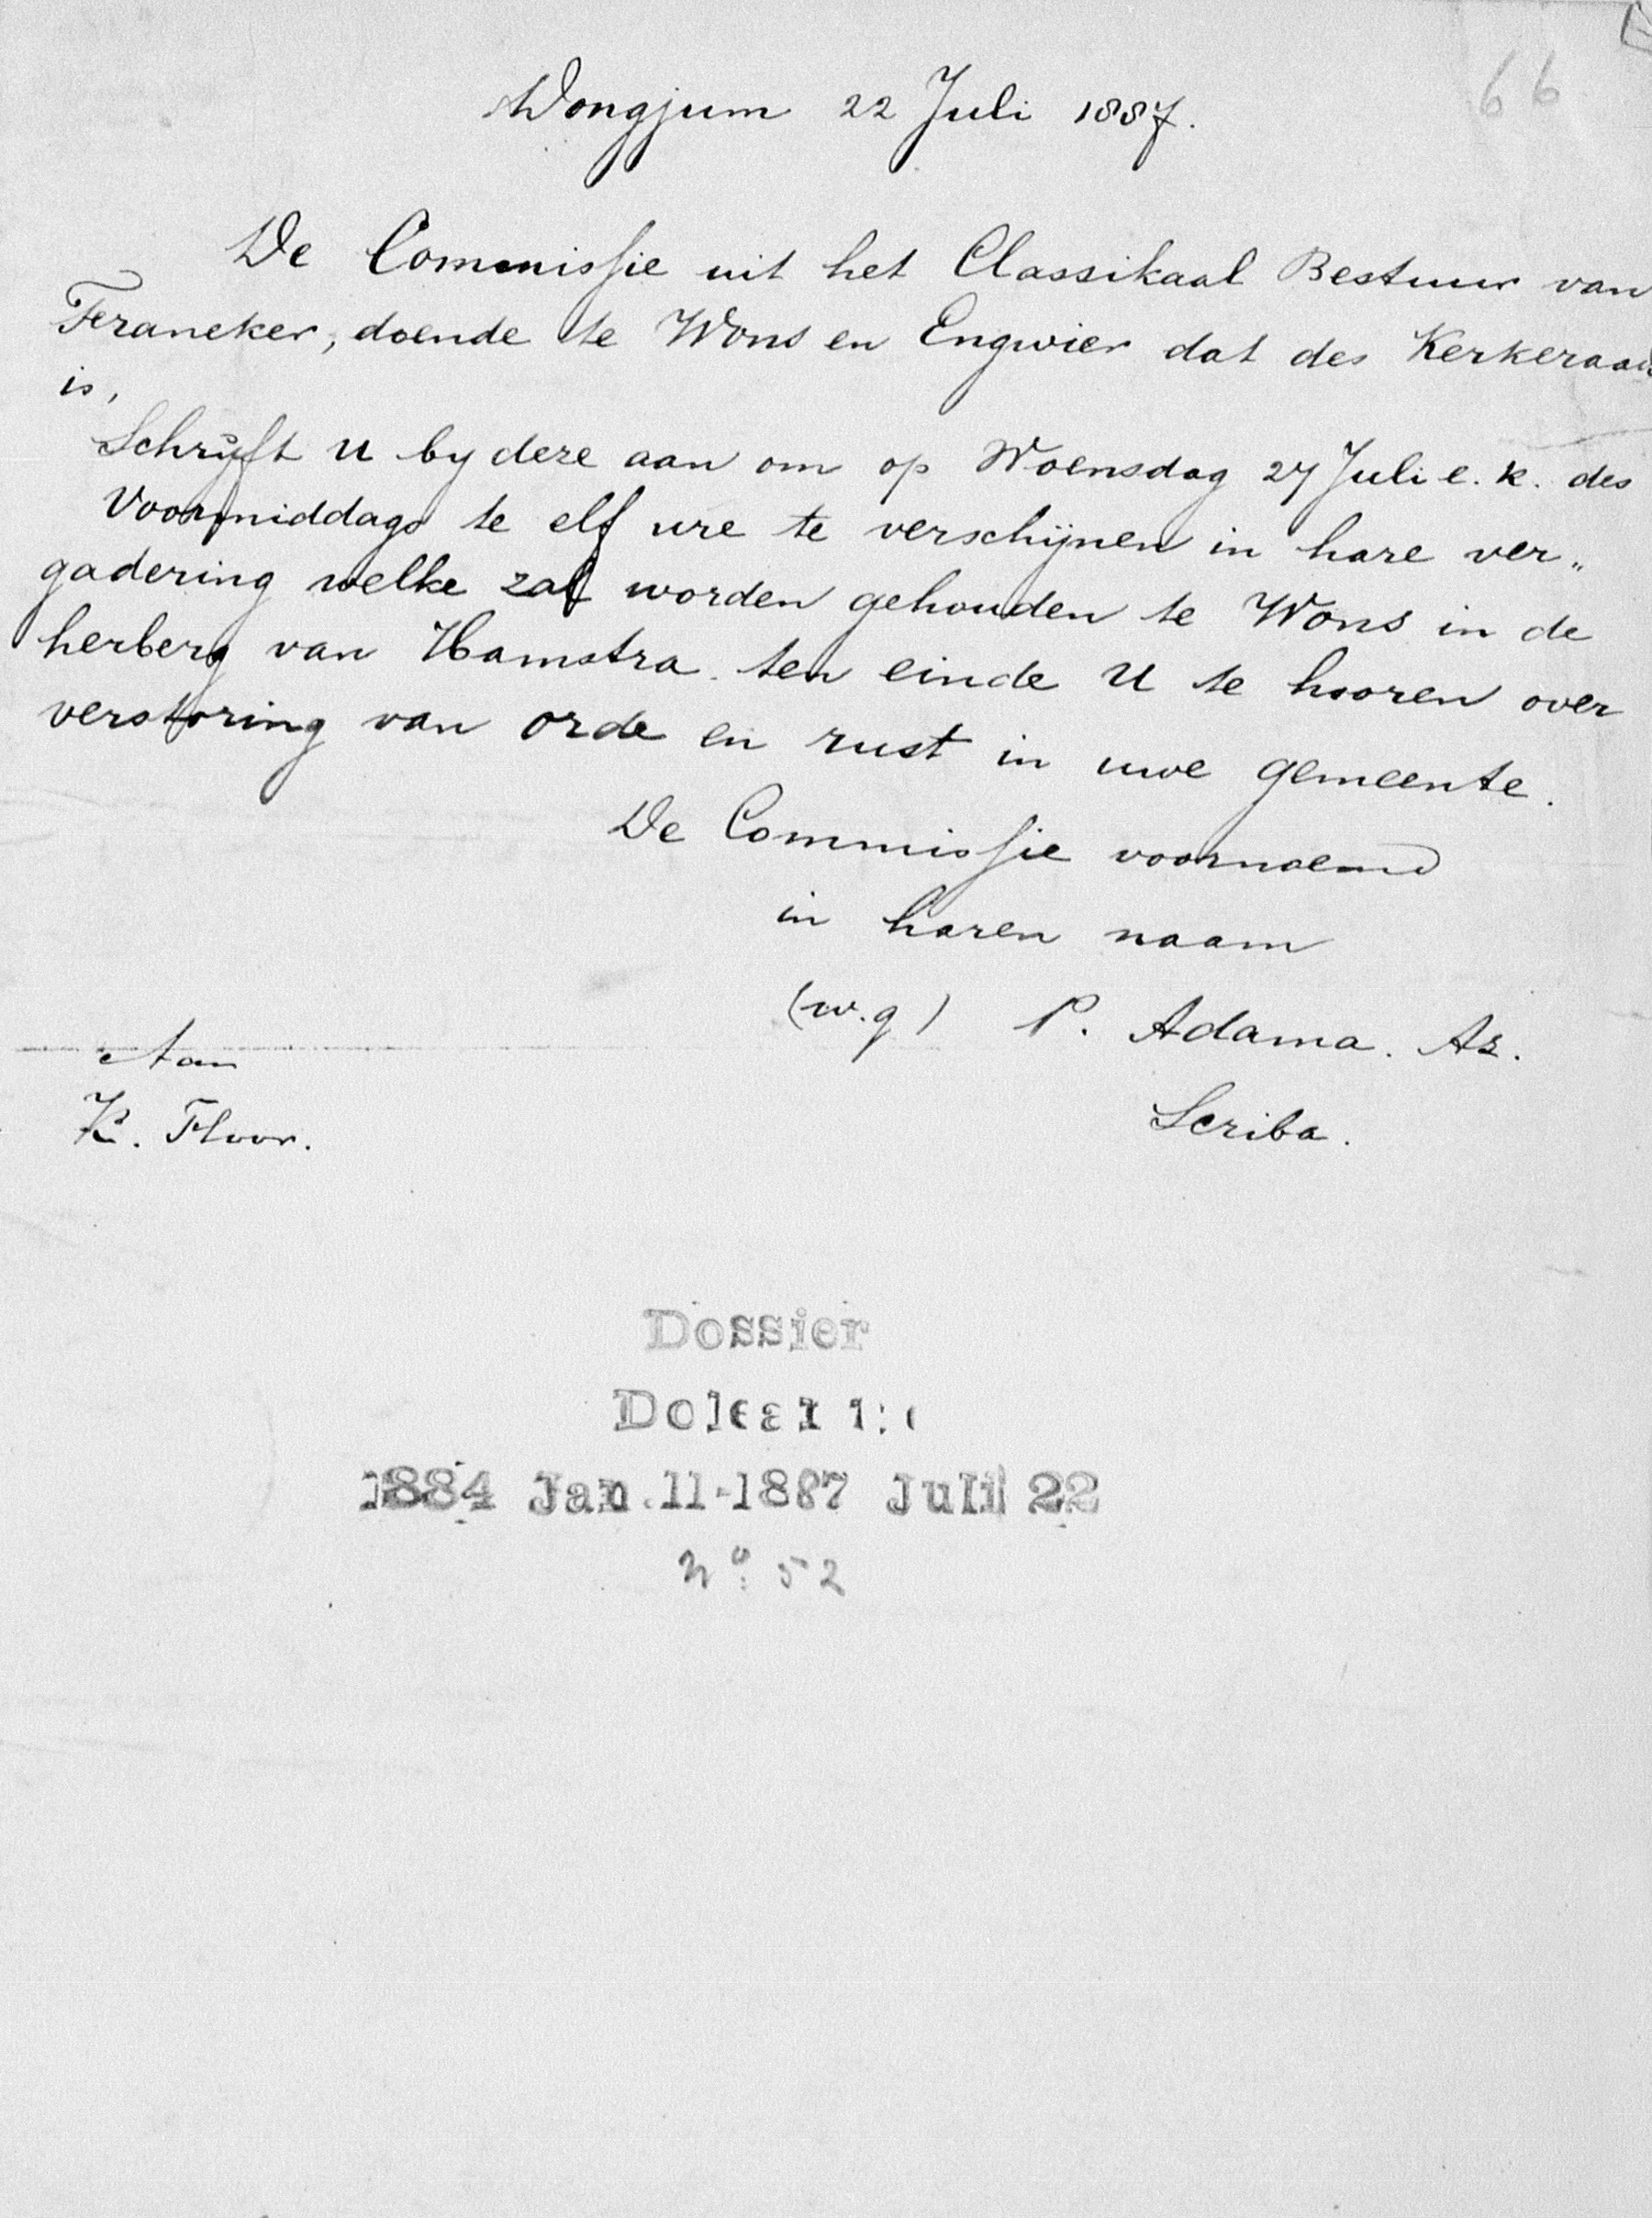 66
Dongjum 22 Juli 1887.
De Commissie uit het Classikaal Bestuur van
Franeker, doende te Wons en Engwier dat des Kerkeraads
is,
Schrijft U by deze aan om op Woensdag 27 Juli e.k. des
Voormiddags te elf ure te verschijnen in hare ver„
gadering welke zal worden gehouden te Wons in de
herberg van Hamstra ten einde U te hooren over
verstoring van orde en rust in uwe gemeente.
De Commissie voornoemd
in haren naam
(w.g) P. Adama. Az.
Scriba.
Aan
K. Floor.
Dossier
1884 Jan.11-1887 Juli 22
No: 52